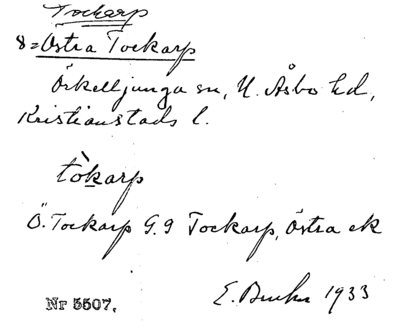 Tockarp
8 = Östra Tockarp
Örkelljunga sn, N. Åsbo hd,
Kristianstads l.
tòkarp
Ö. Tockarp G. 9 Tockarp, Östra ek
E. 1933
Nr 5507.